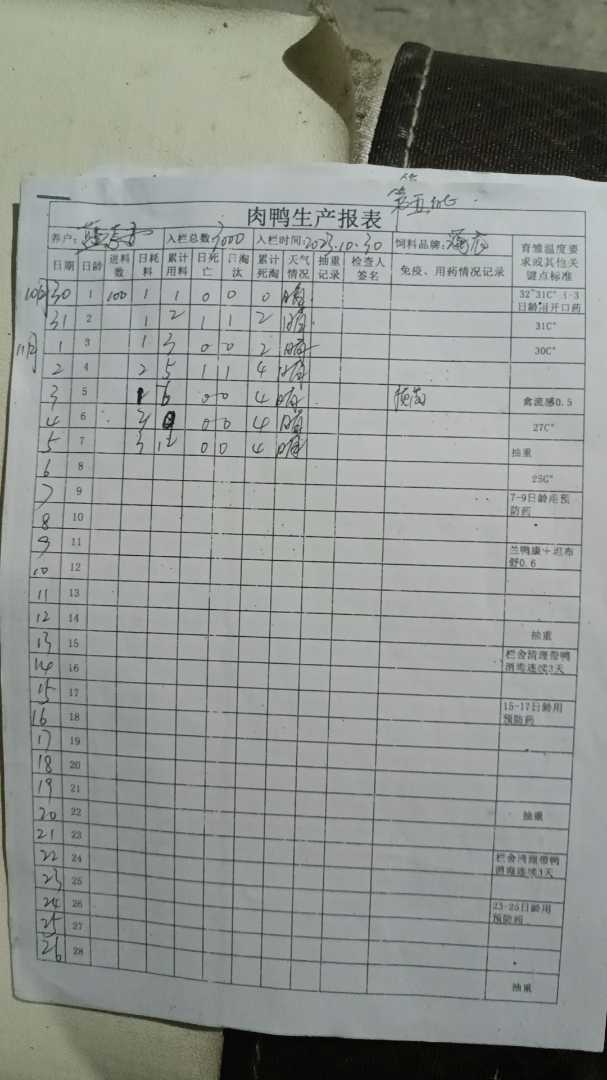 第五批
肉鸭生产报表
养户: 入栏总数: 3000 入栏时间: 2023.10.30 饲料品牌:
日期 日龄 进料数 日耗料 累计用料 日死亡 日淘汰 累计死淘 天气情况 抽重记录 检查人签名 免疫、用药情况记录 育雏温度要求或其他关键点标准
10月30 1 100 1 1 0 0 0 晴 32~31C° 1-3日龄用开口药
31 2 1 2 1 1 2 晴 31C°
11月1 3 1 3 0 0 2 晴 30C°
2 4 2 5 1 1 4 晴
3 5 6 0 0 4 晴 禽流感0.5
4 6 3 0 0 4 晴 27C°
5 7 3 12 0 0 4 晴 抽重
6 8 25C°
7 9 7-9日龄用预防药
8 10
9 11 兰鸭康+ 舒0.6
10 12
11 13
12 14 抽重
13 15 栏舍清理带鸭消毒连续3天
14 16
15 17 15-17日龄用预防药
16 18
17 19
18 20
19 21
20 22 抽重
21 23
22 24 栏舍清理带鸭消毒连续3天
23 25
24 26 23-25日龄用预防药
25 27
26 28 抽重